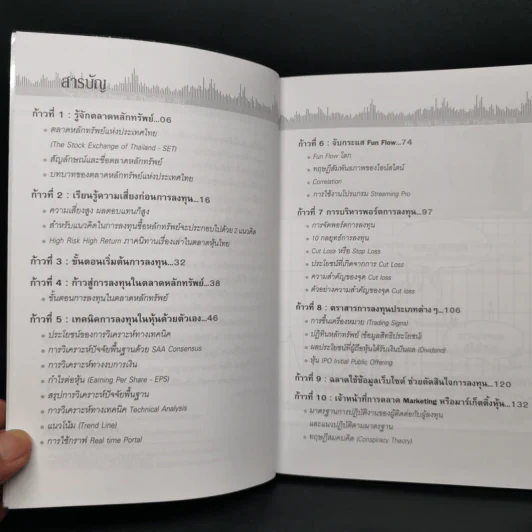 สารบัญ
ก้าวที่ 1 : รู้จักตลาดหลักทรัพย์...06
ตลาดหลักทรัพย์แห่งประเทศไทย
(The Stock Exchange of Thailand - SET)
สัญลักษณ์และชื่อตลาดหลักทรัพย์
บทบาทของตลาดหลักทรัพย์แห่งประเทศไทย
ก้าวที่ 2 : เรียนรู้ความเสี่ยงก่อนการลงทุน...16
ความเสี่ยงสูง ผลตอบแทนก็สูง
สำหรับแนวคิดในการลงทุนซื้อหลักทรัพย์จะประกอบไปด้วย 2 แนวคิด
High Risk High Return ภาคนิทานเรื่องเล่าในตลาดหุ้นไทย
ก้าวที่ 3 : ขั้นตอนเริ่มต้นการลงทุน...32
ก้าวที่ 4 : ก้าวสู่การลงทุนในตลาดหลักทรัพย์...38
ขั้นตอนการลงทุนในตลาดหลักทรัพย์
ก้าวที่ 5 : เทคนิคการลงทุนในหุ้นด้วยตัวเอง...46
ประโยชน์ของการวิเคราะห์ทางเทคนิค
การวิเคราะห์ปัจจัยพื้นฐานด้วย SAA Consensus
การวิเคราะห์ทางงบการเงิน
กำไรต่อหุ้น (Earning Per Share - EPS)
สรุปการวิเคราะห์ปัจจัยพื้นฐาน
การวิเคราะห์ทางเทคนิค Technical Analysis
แนวโน้ม (Trend Line)
การใช้กราฟ Real time Portal
ก้าวที่ 6 : จับกระแส Fun Flow...74
Fun Flow โลก
ทฤษฎีสัมพันธภาพของไอน์สไตน์
Correlation
การใช้งานโปรแกรม Streaming Pro
ก้าวที่ 7 การบริหารพอร์ตการลงทุน...97
การจัดพอร์ตการลงทุน
10 กลยุทธ์การลงทุน
Cut Loss หรือ Stop Loss
ประโยชน์ที่เกิดจากการ Cut Loss
ความสำคัญของจุด Cut Loss
ตัวอย่างความสำคัญของจุด Cut Loss
ก้าวที่ 8 : ตราสารการลงทุนประเภทต่างๆ...106
การขึ้นเครื่องหมาย (Trading Signs)
ปฏิทินหลักทรัพย์ (ข้อมูลสิทธิประโยชน์)
ผลประโยชน์ที่ผู้ถือหุ้นได้รับเงินปันผล (Dividend)
หุ้น IPO Initial Public Offering
ก้าวที่ 9 : ฉลาดใช้ข้อมูลเว็บไซต์ ช่วยตัดสินใจการลงทุน...120
ก้าวที่ 10 : เจ้าหน้าที่การตลาด Marketing หรือมาร์เก็ตติ้งหุ้น...132
มาตรฐานการปฏิบัติงานของผู้ติดต่อกับผู้ลงทุน
และแนวปฏิบัติตามมาตรฐาน
ทฤษฎีสมคบคิด (Conspiracy Theory)